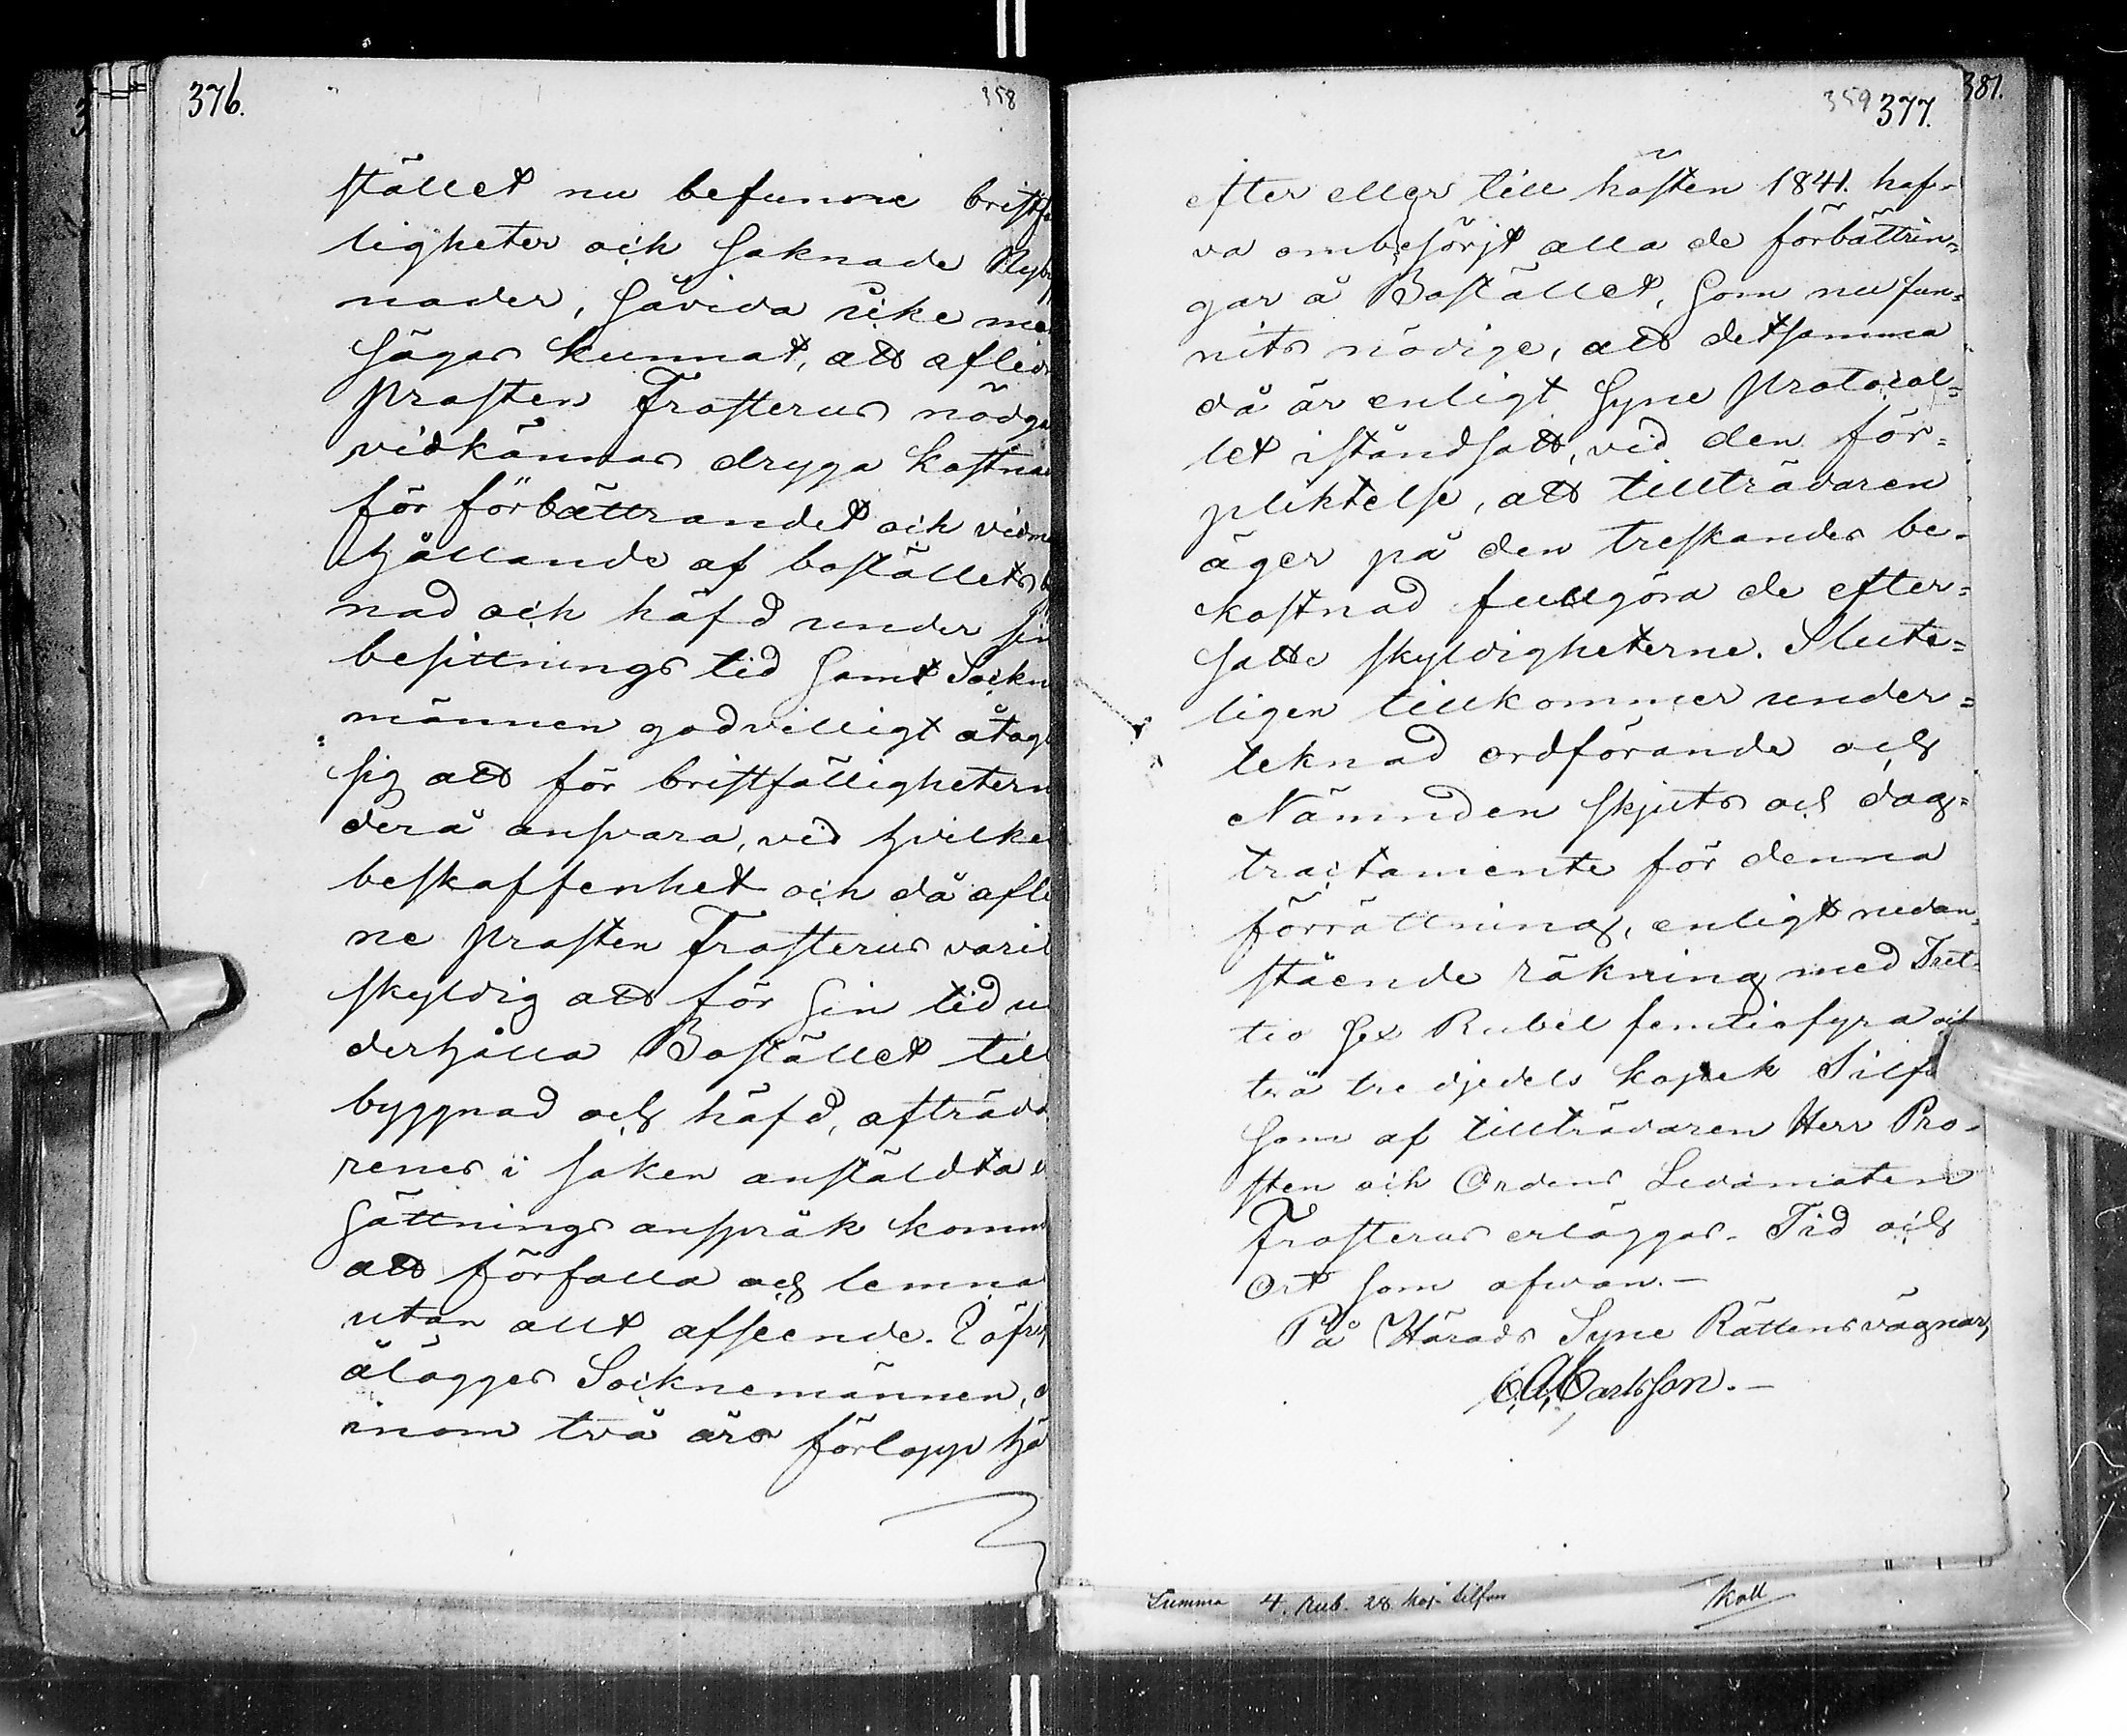 376.
358
stället nu befunne bristfä
ligheter och saknade Nyby
nader, såvida icke me
sägas kunnat, att aflid
Prosten Frosterus nödga
vidkännas dryga kostna
för förbättrandet och vidma
hållande af boställets b
nad och häfd under sin
besittnings tid samt Sockn
männen godvilligt åtag
sig att för bristfälligheterna
derå ansvara, vid hvilke
beskaffenhet och då afle
ne Prosten Frosterus varit
skyldig att för sin tid u
derhålla Bostället till
byggnad och häfd, afträda
renes i saken anstäldta
sättnings anspråk komm
att förfalla och lemna
utan allt afseende. I öfri
ålägges Socknemännen,
inom två års förlopp hä
359
377.
381.
efter eller till hösten 1841. haf-
va ombesörjt alla de förbättrin=
gar å Bostället, som nu fun=
nits nödige, att detsamma
då är enligt Syne Protocol=
let iståndsatt, vid den för=
pliktelse, att tillträdaren
äger på den treskandes be-
kostnad fullgöra de efter=
satte skyldigheterne. Slute=
ligen tillkommer under=
teknad ordförande och
Nämnden skjuts och dag=
tractamente för denna
förrättning, enligt nedan=
stående räkning med Tret=
tio sex Rubel femtiofyra och
två tredjedels kopek Silf
som af tillträdaren Herr Pro-
sten och Ordens Ledamoten
Frosterus erlägges. Tid och
Ort som ofwan.-
På Härads Syne Rättens vägnar,
C. A. Carlsson.-
Summa 4. Rub. 28 kop. silfver
Koll